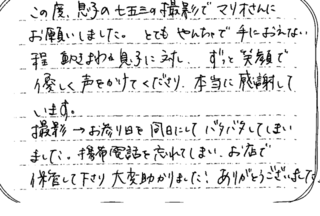 この度、息子の七五三の撮影でマリオさんに
お願いしました。とてもやんちゃで手におえない
程 動きまわる息子に対し、ずっと笑顔で
優しく声をかけてくださり、本当に感謝して
います。
撮影→お参り日を同日にしてバタバタしてしまい
ました。携帯電話を忘れてしまい、お店で
保管して下さり大変助かりました！ありがとうございました。